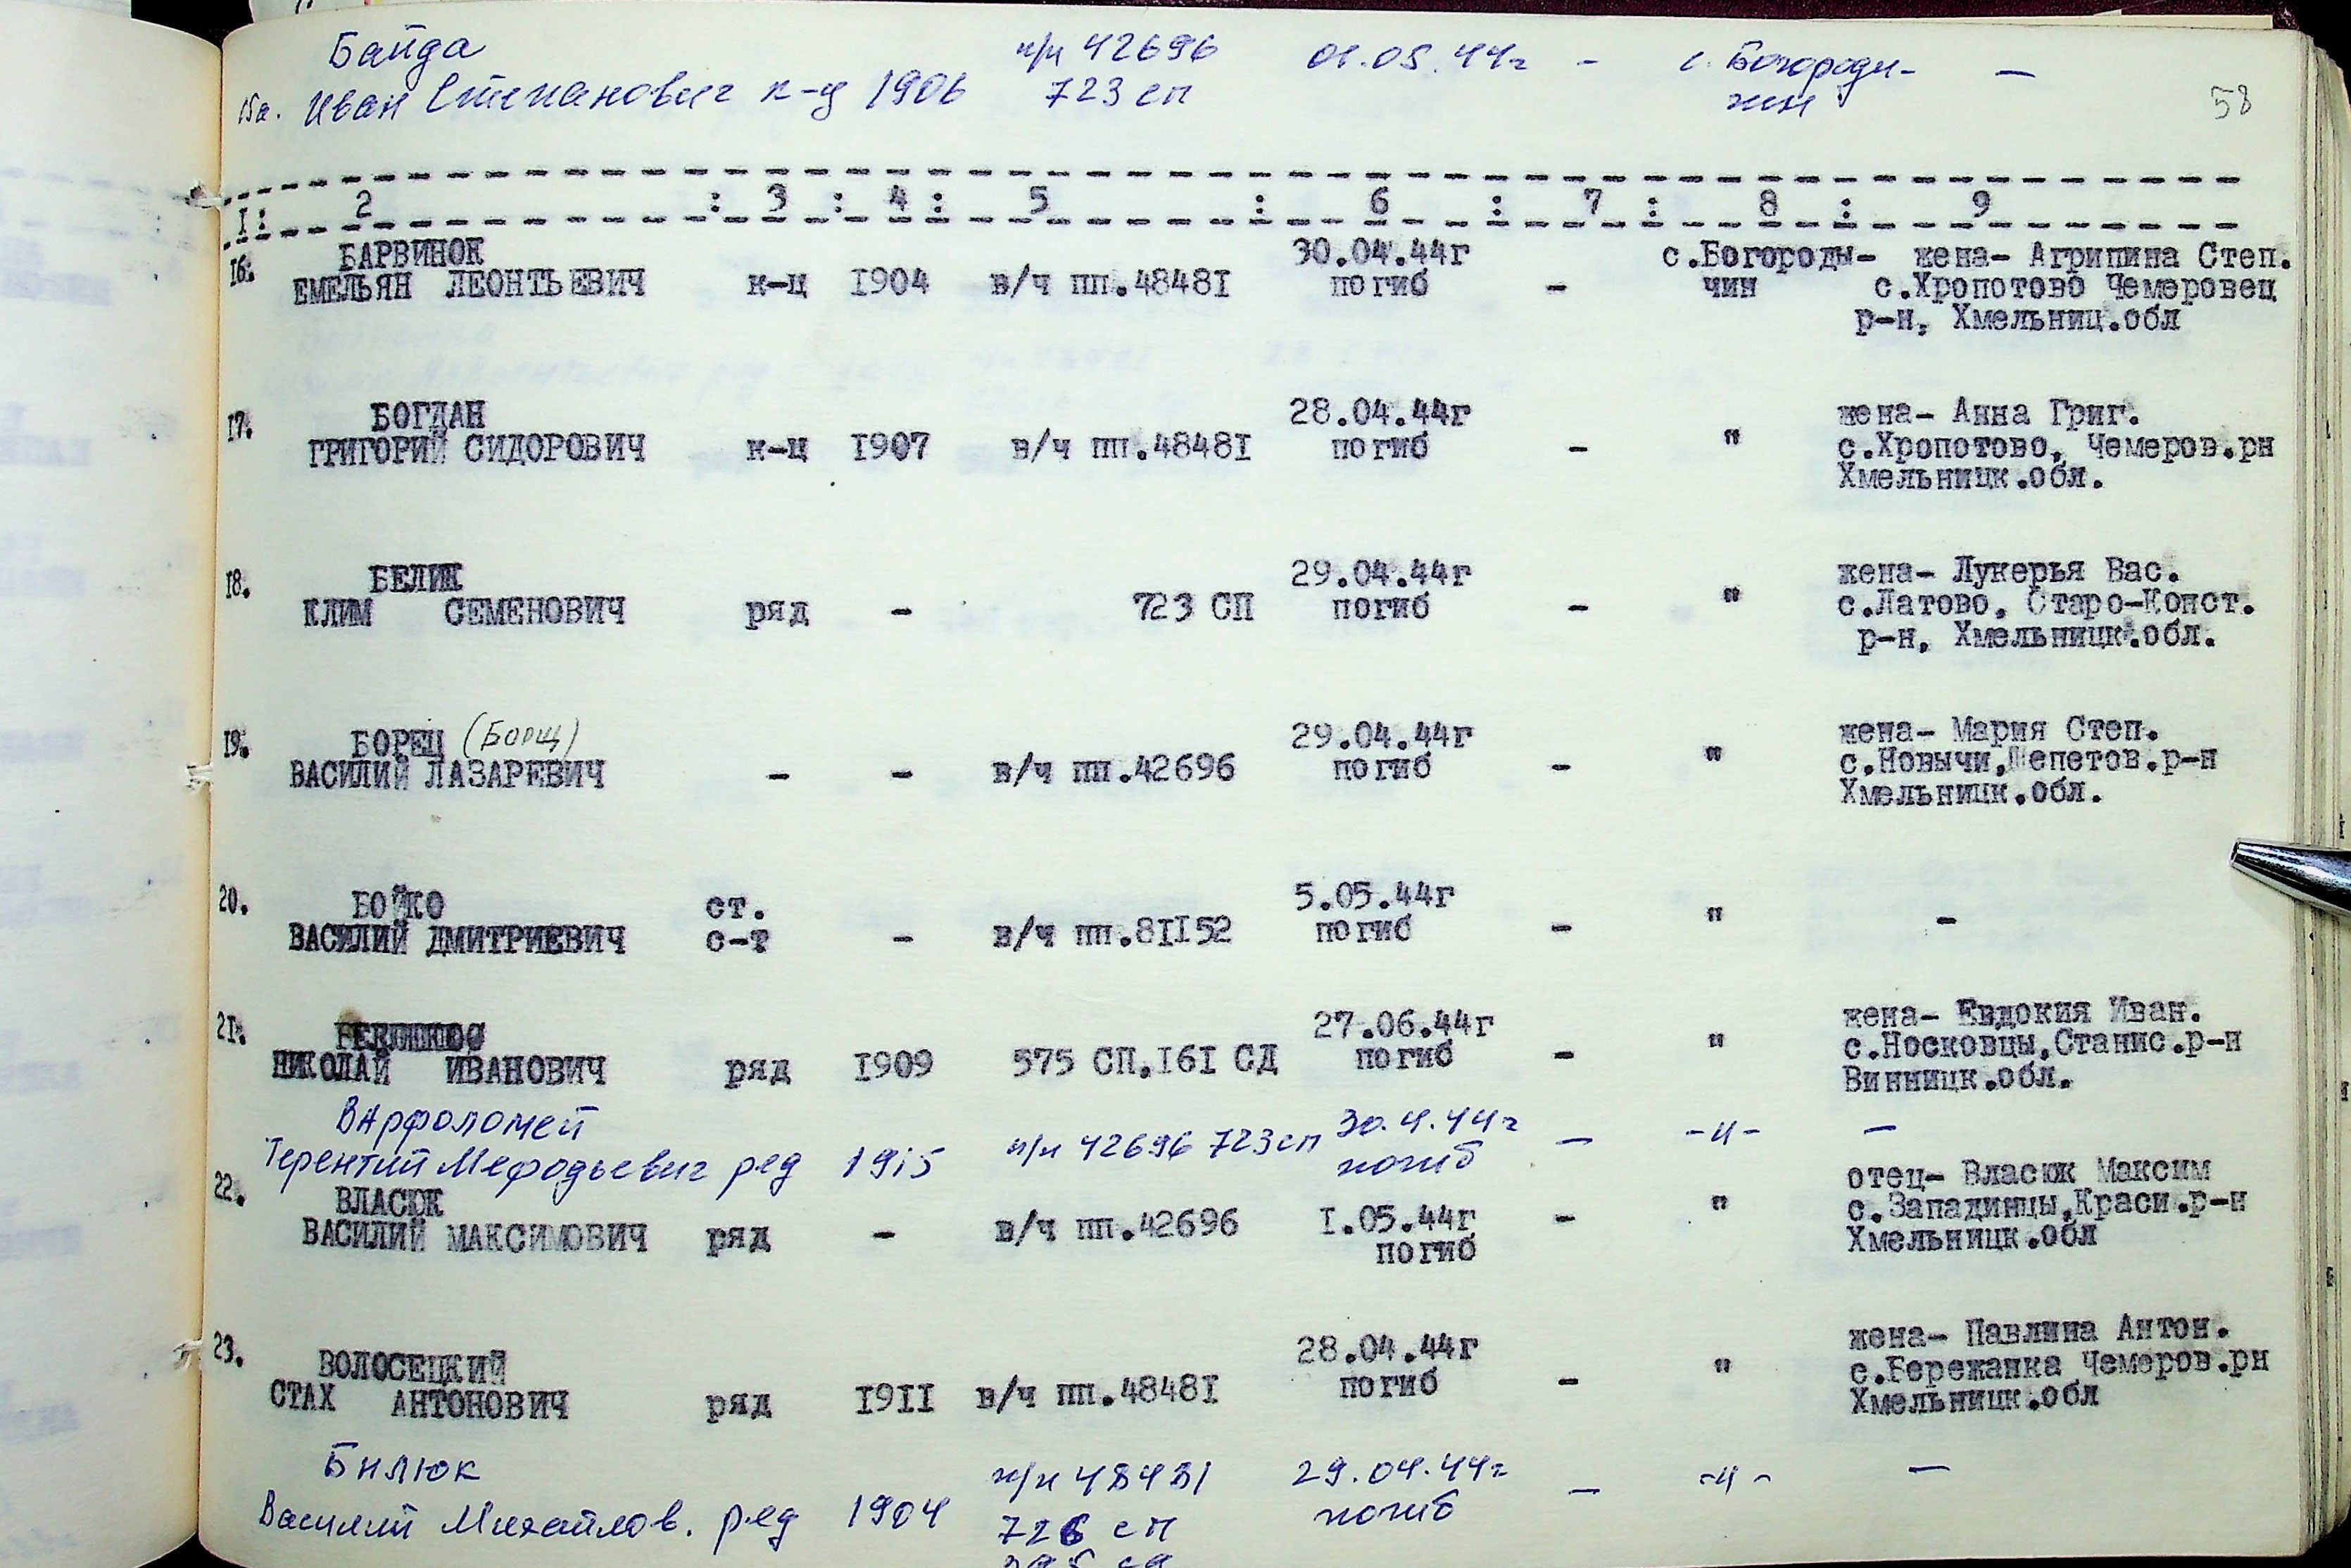 Байда п/п 42696 01.05.44г - с. Богороди- —
15а. Иван Степанович к-ц 1906 723 сп чин 58
I: 2 : 3 : 4 : 5 : 6 : 7 : 8 : 9
16. БАРВИНОК 30.04.44г с.Богороды- жена- Агрипина Степ.
ЕМЕЛЬЯН ЛЕОНТЬЕВИЧ к-ц I904 в/ч пп.4848I погиб - чин с.Хропотово Чемеровец
р-н, Хмельниц.обл
17. БОГДАН 28.04.44г жена- Анна Григ.
ГРИГОРИЙ СИДОРОВИЧ к-ц I907 в/ч пп.4848I погиб - " с.Хропотово, Чемеров.рн
Хмельницк.обл.
18. БЕЛИК 29.04.44г жена- Лукерья Вас.
КЛИМ СЕМЕНОВИЧ ряд - 723 СП погиб - " с.Латово, Старо-Конст.
р-н, Хмельницк.обл.
19. БОРЕЦ (Борщ) 29.04.44г жена- Мария Степ.
ВАСИЛИЙ ЛАЗАРЕВИЧ - - в/ч пп.42696 погиб - " с.Новычи,Шепетов.р-н
Хмельницк.обл.
20. БОЙКО ст. 5.05.44г
ВАСИЛИЙ ДМИТРИЕВИЧ с-т - в/ч пп.8II52 погиб - " -
2I. 27.06.44г жена- Евдокия Иван.
НИКОЛАЙ ИВАНОВИЧ ряд I909 575 СП,I6I СД погиб - " с.Носковцы,Станис.р-н
Винницк.обл.
Варфоломей 30.4.44г
Терентий Мефодьевич ряд 1915 п/п 42696 723сп погиб — -"- —
22. ВЛАСЮК отец- Власюк Максим
ВАСИЛИЙ МАКСИМОВИЧ ряд - в/ч пп.42696 I.05.44г - " с.Западинцы,Краси.р-н
погиб Хмельницк.обл
23. ВОЛОСЕЦКИЙ 28.04.44г жена- Павлина Антон.
СТАХ АНТОНОВИЧ ряд I9II в/ч пп.4848I погиб - " с.Бережанка Чемеров.рн
Хмельницк.обл
Билюк п/п 48481 29.04.44г — -"- —
Василий Михайлов. ряд 1904 726 сп погиб